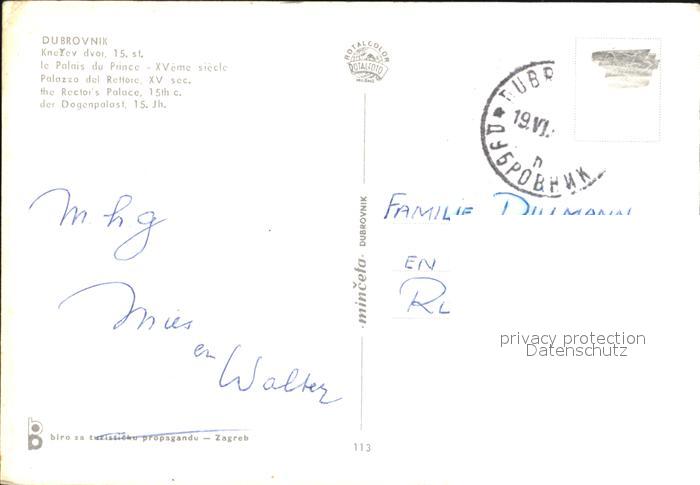 DUBROVNIK
Knežev dvor, 15. st.
le Palais du Prince - XVème siècle
Palazzo del Rettore, XV sec.
the Rector's Palace, 15th c.
der Dogenpalast, 15. Jh.
ROTALCOLOR
ROTALFOTO
MILANO
DUBR
19.VI.
П
ДУБРОВНИК
M hg
Mies
en
Walter
minčeta · DUBROVNIK
FAMILIE DILLMANN
EN
privacy protection
Datenschutz
biro za turističku propagandu — Zagreb
113